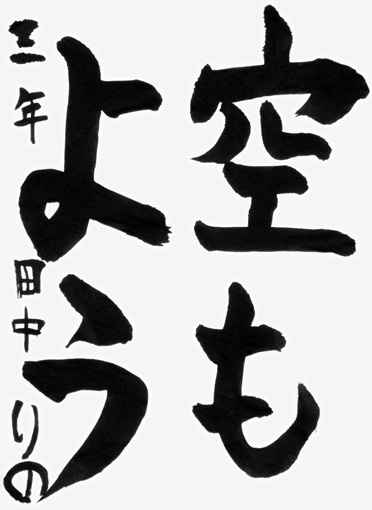 空も
よう
三年 田中りの